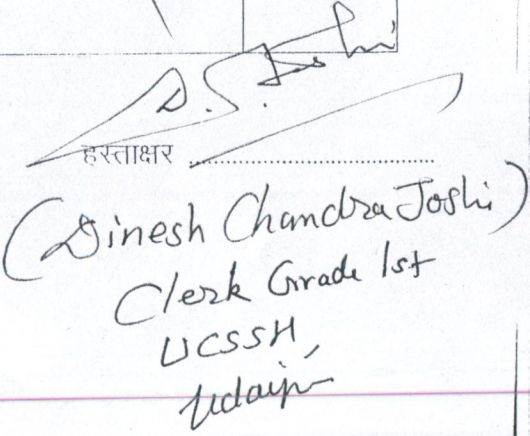 D. S. Joshi
हस्ताक्षर ..........................................
(Dinesh Chandra Joshi)
Clerk Grade 1st
UCSSH
Udaipur